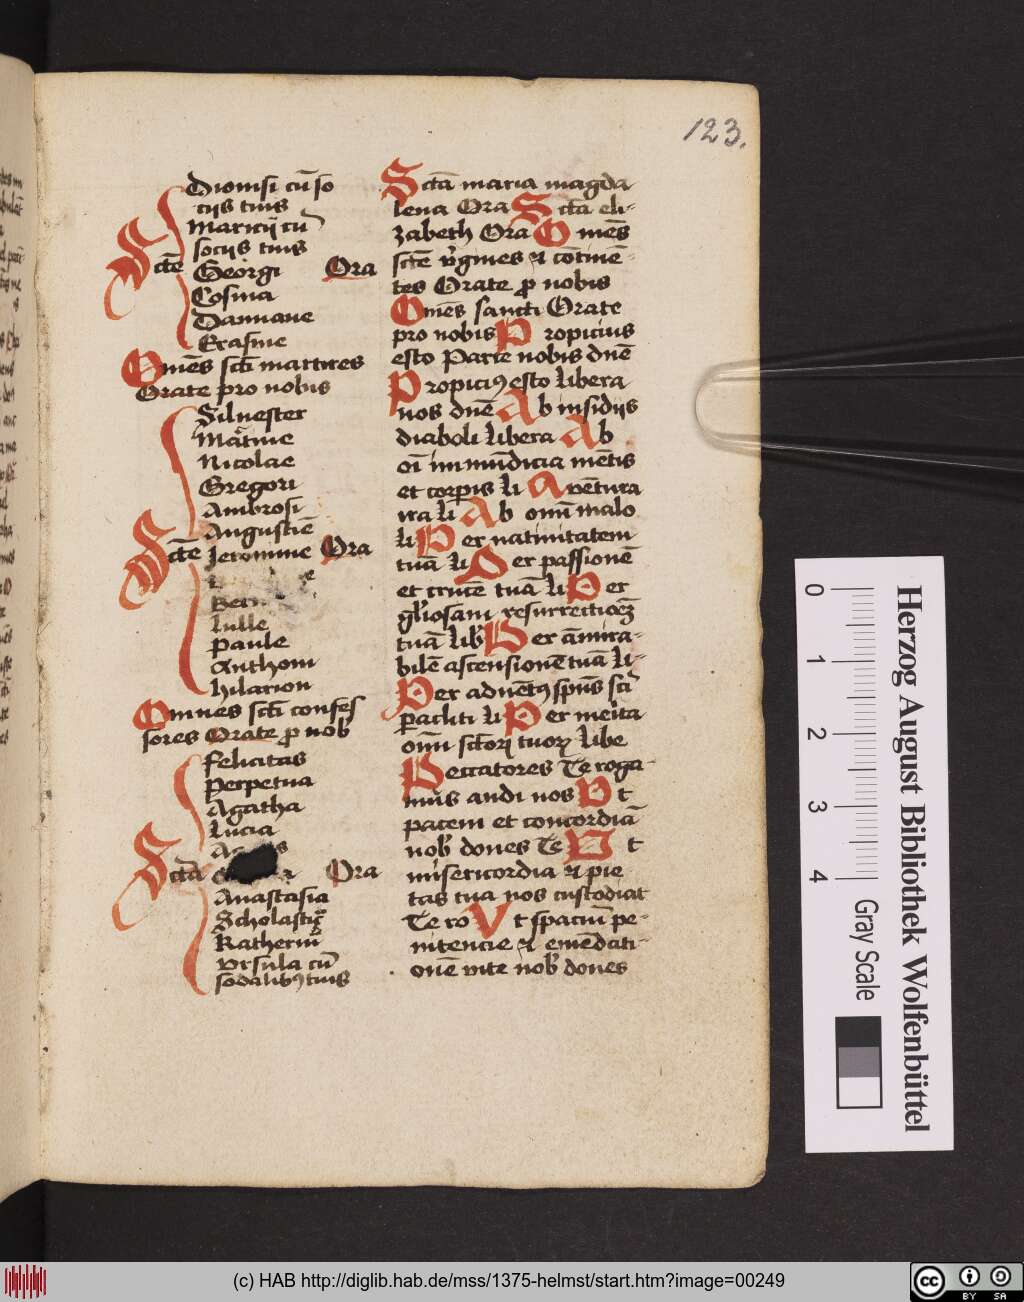 123.
Dionisi cū so
ciis tuis
Mauricij cū
sociis tuis
Sctē Georgi Ora
Cosma
Damiane
Erasme
Omēs scti martires
Orate pro nobis
Siluester
Martine
Nicolae
Gregori
Ambrosi
Augustiē
Sctē Jeronime Ora
lulle
Paule
Anthoni
hilarion
Omnes scti confes
sores Orate ꝓ nob
Felicitas
Perpetua
Agatha
Lucia
Sctā Ora
Anastasia
Scholastica
Katherina
vrsula cū
sodalibꝰ tuis
Sctā maria magda
lena Ora Sctā eli-
zabeth Ora Omēs
sctē v̄gines et cōtinē-
tes Orate ꝓ nobis
Omēs sancti Orate
pro nobis Propicius
esto Parce nobis dnē
Propiciꝰ esto libera
nos dnē Ab insidiis
diaboli libera Ab
oī inmūdicia mētis
et corpis li A vētura
ira li Ab omī malo
li Per natiuitatem
tuā li Per passionē
et crucē tuā li Per
gl'iosam resurrectionē
tuā lib' Per āmira-
bilē ascensionē tuā li-
Per aduētꝰ spūs scī
Pacliti li Per merita
omī sctorꝝ tuorꝝ libe
Peccatores Te roga-
mus audi nos Vt
pacem et concordiā
nob' dones Te Vt
misericordia et pie
tas tua nos custodiat
Te ro Vt spaciū pe-
nitencie et emēdati-
onē vite nob' dones
0 1 2 3 4
Gray Scale
Herzog August Bibliothek Wolfenbüttel
(c) HAB http://diglib.hab.de/mss/1375-helmst/start.htm?image=00249
cc BY SA